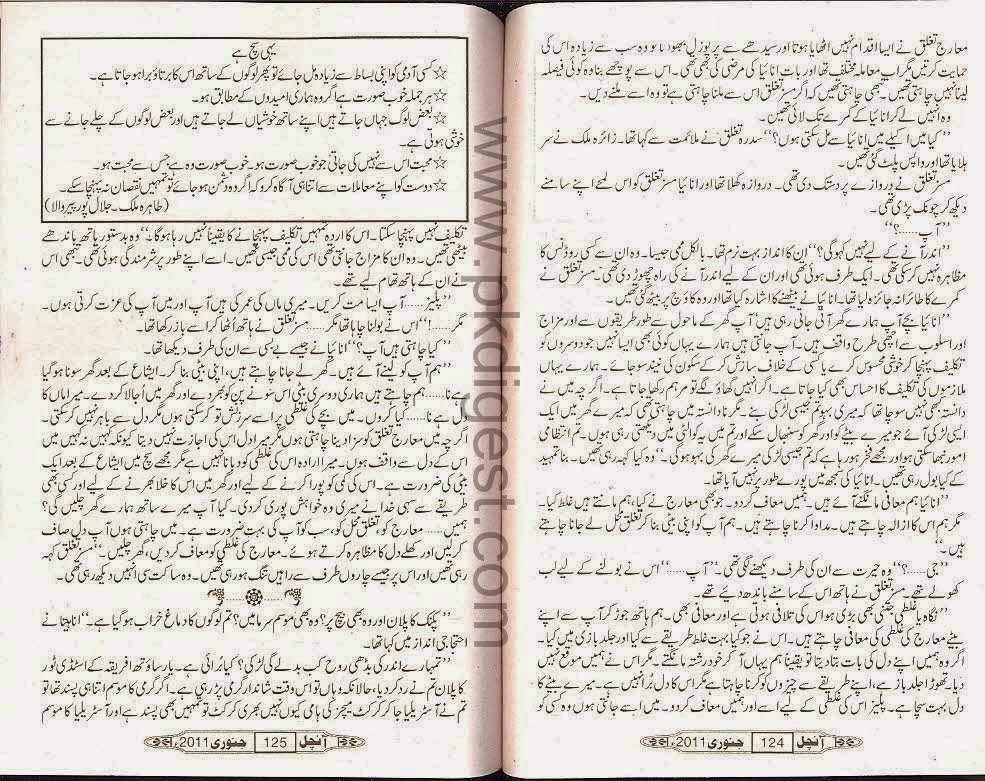 معارج تغلق نے ایسا اقدام نہیں اٹھایا ہوتا اور سیدھے سے پرپوزل بھجوا دیتا تو وہ سب سے زیادہ اس کی
حمایت کرتیں مگر اب معاملہ مختلف تھا اور بات انائیا کی مرضی کی بھی تھی۔ اس سے پوچھے بنا وہ کوئی فیصلہ
لینا نہیں چاہتی تھیں۔ تبھی چاہتی تھیں کہ اگر مسز تغلق اس سے ملنا چاہتی ہے تو وہ اسے ملنے دیں۔
وہ انہیں لے کر انائیا کے کمرے تک لائی تھیں۔
"کیا میں اکیلے میں انائیا سے مل سکتی ہوں؟" سدرہ تغلق نے ملائمت سے کہا تھا۔ زائرہ ملک نے سر
ہلایا تھا اور واپس پلٹ گئی تھیں۔
مسز تغلق نے دروازے پر دستک دی تھی۔ دروازہ کھلا تھا اور انائیا مسز تغلق کو اس لمحے اپنے سامنے
دیکھ کر چونک پڑی تھی۔
"آپ.....؟"
"اندر آنے کے لیے نہیں کہو گی؟" ان کا انداز بہت نرم تھا۔ بالکل ممی جیسا۔ وہ ان سے کسی روڈنس کا
مظاہرہ نہیں کر سکی تھی۔ ایک طرف ہوئی تھی اور ان کے لیے اندر آنے کی راہ چھوڑ دی تھی۔ مسز تغلق نے
کمرے کا طائرانہ جائزہ لیا تھا۔ انائیا نے بیٹھنے کا اشارہ کیا تھا اور وہ کاؤچ پر بیٹھ گئی تھیں۔
"انائیا بچے آپ ہمارے گھر آتی جاتی رہی ہیں' آپ گھر کے ماحول سے طور طریقوں سے اور مزاج
اور اسلوب سے اچھی طرح واقف ہیں۔ آپ جانتی ہیں ہمارے یہاں کوئی بھی ایسا نہیں جو دوسروں کو
تکلیف پہنچا کر خوشی محسوس کرے یا کسی کے خلاف سازش کر کے سکون کی نیند سو جائے۔ ہمارے یہاں
ملازموں کی تکلیف کا احساس بھی کیا جاتا ہے۔ اگر انہیں گھاؤ لگے تو مرہم رکھا جاتا ہے۔ اگرچہ میں نے
دانستہ بھی نہیں سوچا تھا کہ میری بہو تم جیسی لڑکی بنے۔ مگر نادانستہ میں چاہتی تھی کہ میرے گھر میں ایک
ایسی لڑکی آئے جو میرے بیٹے کو اور گھر کو سنبھال سکے اور تم میں یہ کوالٹی میں دیکھتی رہی ہوں۔ تم انتظامی
امور نبھا سکتی ہو اور مجھے فخر ہو رہا ہے کہ تم جیسی لڑکی میرے گھر کی بہو ہو گی۔" وہ کیا کہہ رہی تھیں۔ بنا تمہید
کے کیا بول رہی تھیں۔ انائیا کی سمجھ میں پورے طور پر نہیں آیا تھا۔
"انائیا ہم معافی مانگنے آئے ہیں۔ ہمیں معاف کر دو۔ جو بھی معارج نے کیا، ہم مانتے ہیں غلط کیا۔
مگر ہم اس کا ازالہ چاہتے ہیں۔ مداوا کرنا چاہتے ہیں۔ ہم آپ کو اپنی بیٹی بنا کر تغلق محل لے جانا چاہتے
ہیں۔"
"جی.....؟" وہ حیرت سے ان کی طرف دیکھنے لگی تھی۔ "آپ....." اس نے بولنے کے لیے لب
کھولے تھے۔ مسز تغلق نے ہاتھ اس کے سامنے باندھ دیئے تھے۔
"گناہ یا غلطی جتنی بھی بڑی ہو اس کی تلافی ہوتی ہے اور معافی بھی۔ ہم ہاتھ جوڑ کر آپ سے اپنے
بیٹے معارج کی غلطی کی معافی چاہتے ہیں۔ اس نے جو کیا بہت غلط طریقے سے کیا اور جلد بازی میں کیا۔
اگر وہ ہمیں اپنے دل کی بات بتا دیتا تو یقیناً ہم یہاں آ کر خود رشتہ مانگتے۔ مگر اس نے ہمیں موقع نہیں
دیا۔ تھوڑا جلد باز ہے، اپنے طریقے سے چیزوں کو کرنا چاہتا ہے مگر اس کا دل بُرا نہیں ہے۔ میرے بیٹے کا
دل بہت سچا ہے۔ پلیز اس کی غلطی کے لیے اسے اور ہمیں معاف کر دو۔ میں اسے جانتی ہوں وہ کسی کو
آنچل 124 جنوری 2011ء
یہی سچ ہے
☆ کسی آدمی کو اپنی بساط سے زیادہ مل جائے تو پھر لوگوں کے ساتھ اس کا برتاؤ برا ہو جاتا ہے۔
☆ ہر جملہ خوب صورت ہے اگر وہ ہماری امیدوں کے مطابق ہو۔
☆ بعض لوگ جہاں جاتے ہیں اپنے ساتھ خوشیاں لے جاتے ہیں اور بعض لوگوں کے چلے جانے سے
خوشی ہوتی ہے۔
☆ محبت اس سے نہیں کی جاتی جو خوب صورت ہو۔ خوب صورت وہ ہے جس سے محبت ہو۔
☆ دوست کو اپنے معاملات سے اتنا ہی آگاہ کرو کہ اگر وہ دشمن ہو جائے تو تمہیں نقصان نہ پہنچا سکے۔
(طاہرہ ملک۔ جلال پور پیر والا)
تکلیف نہیں پہنچا سکتا۔ اس کا ارادہ تمہیں تکلیف پہنچانے کا یقیناً نہیں رہا ہو گا۔" وہ بدستور ہاتھ باندھے
بیٹھی تھیں۔ وہ ان کا مزاج جانتی تھی اس کی ممی جیسی تھیں۔ اسے اپنے طور پر شرمندگی ہوئی تھی۔ تبھی اس
نے ان کے ہاتھ تھام لیے تھے۔
"پلیز..... آپ ایسا مت کریں۔ میری ماں کی عمر کی ہیں آپ اور میں آپ کی عزت کرتی ہوں۔
مگر.....!" اس نے بولنا چاہا تھا مگر..... مسز تغلق نے ہاتھ اٹھا کر اسے باز رکھا تھا۔
"کیا چاہتی ہیں آپ؟" انائیا نے جیسے بے بسی سے ان کی طرف دیکھا تھا۔
"ہم آپ کو لینے آئے ہیں۔ گھر لے جانا چاہتے ہیں، اپنی بیٹی بنا کر۔ ایشاع کے بعد گھر سونا ہو گیا
ہے نا..... ہم چاہتے ہیں ہماری دوسری بیٹی اس سونے پن کو بھر دے اور گھر میں اجالا کر دے۔ میرا ماں کا
دل ہے نا..... کیا کروں۔ میں بیٹے کی غلطی پر اسے سرزنش تو کر سکتی ہوں مگر دل سے باہر نہیں کر سکتی۔
اگرچہ میں معارج تغلق کو سزا دینا چاہتی ہوں مگر میرا دل اس کی اجازت نہیں دیتا کیونکہ کہیں نہ کہیں میں
اس کے دل سے واقف ہوں۔ میرا ارادہ اس کی غلطی کو دبانا نہیں ہے مگر مجھے سچ میں ایشاع کے بعد ایک
بیٹی کی ضرورت ہے۔ اس کی کمی کو پورا کرنے کے لیے اور گھر میں اس کا خلا بھرنے کے لیے اور کسی بھی
طریقے سے سہی خدا نے میری وہ خواہش پوری کر دی۔ کیا آپ میرے ساتھ ہمارے گھر چلیں گی؟
ہمیں..... معارج کو، تغلق محل کو، سب کو آپ کی بہت ضرورت ہے۔ میں چاہتی ہوں آپ دل صاف
کر لیں اور کھلے دل کا مظاہرہ کرتے ہوئے۔ معارج کی غلطی کو معاف کر دیں، گھر چلیں۔" مسز تغلق کہہ
رہی تھیں اور اس پر جیسے چاروں طرف سے راہیں تنگ ہو رہی تھیں۔ وہ ساکت سی انہیں دیکھ رہی تھی۔
"پکنک کا پلان اور وہ بھی بیچ پر؟ وہ بھی موسم سرما میں؟ تم لوگوں کا دماغ خراب ہو گیا ہے۔" انابیتا نے
احتجاجی انداز میں کہا تھا۔
"تمہارے اندر کی بڈھی روح کب بدلے گی لڑکی؟ کیا برائی ہے۔ یار ساؤتھ افریقہ کے اسٹڈی ٹور
کا پلان تم نے رد کر دیا، حالانکہ وہاں تو اس وقت شاندار گرمی پڑ رہی ہے۔ اگر گرمی کا موسم اتنا ہی پسند تھا تو
تم نے آسٹریلیا جا کر کرکٹ میچز کی ہامی کیوں نہیں بھری کرکٹ تو تمہیں بھی پسند ہے اور آسٹریلیا کا موسم
آنچل 125 جنوری 2011ء
www.pkdigest.com